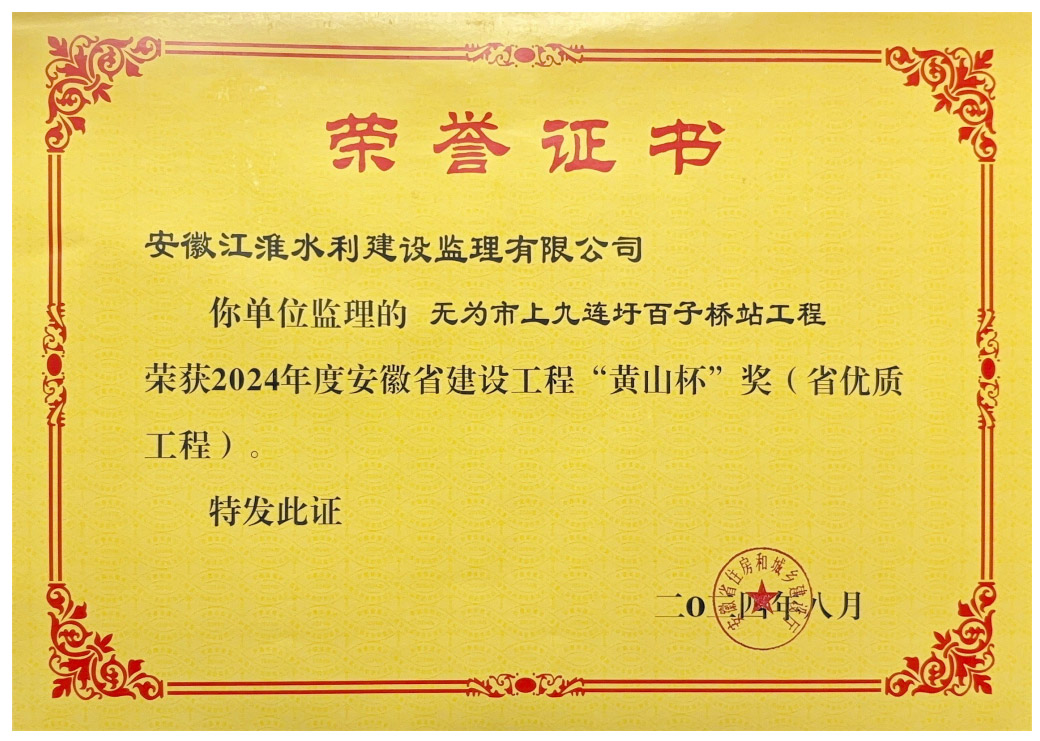 荣誉证书
安徽江淮水利建设监理有限公司
你单位监理的 无为市上九连圩百子桥站工程
荣获2024年度安徽省建设工程“黄山杯”奖（省优质
工程）。
特发此证
安徽省住房和城乡建设厅
二0二四年八月